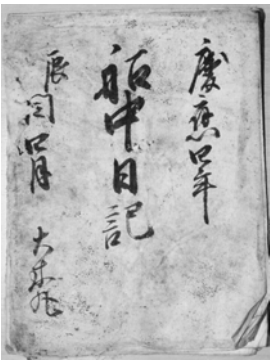 慶應四年
船中日記
辰閏四月
大